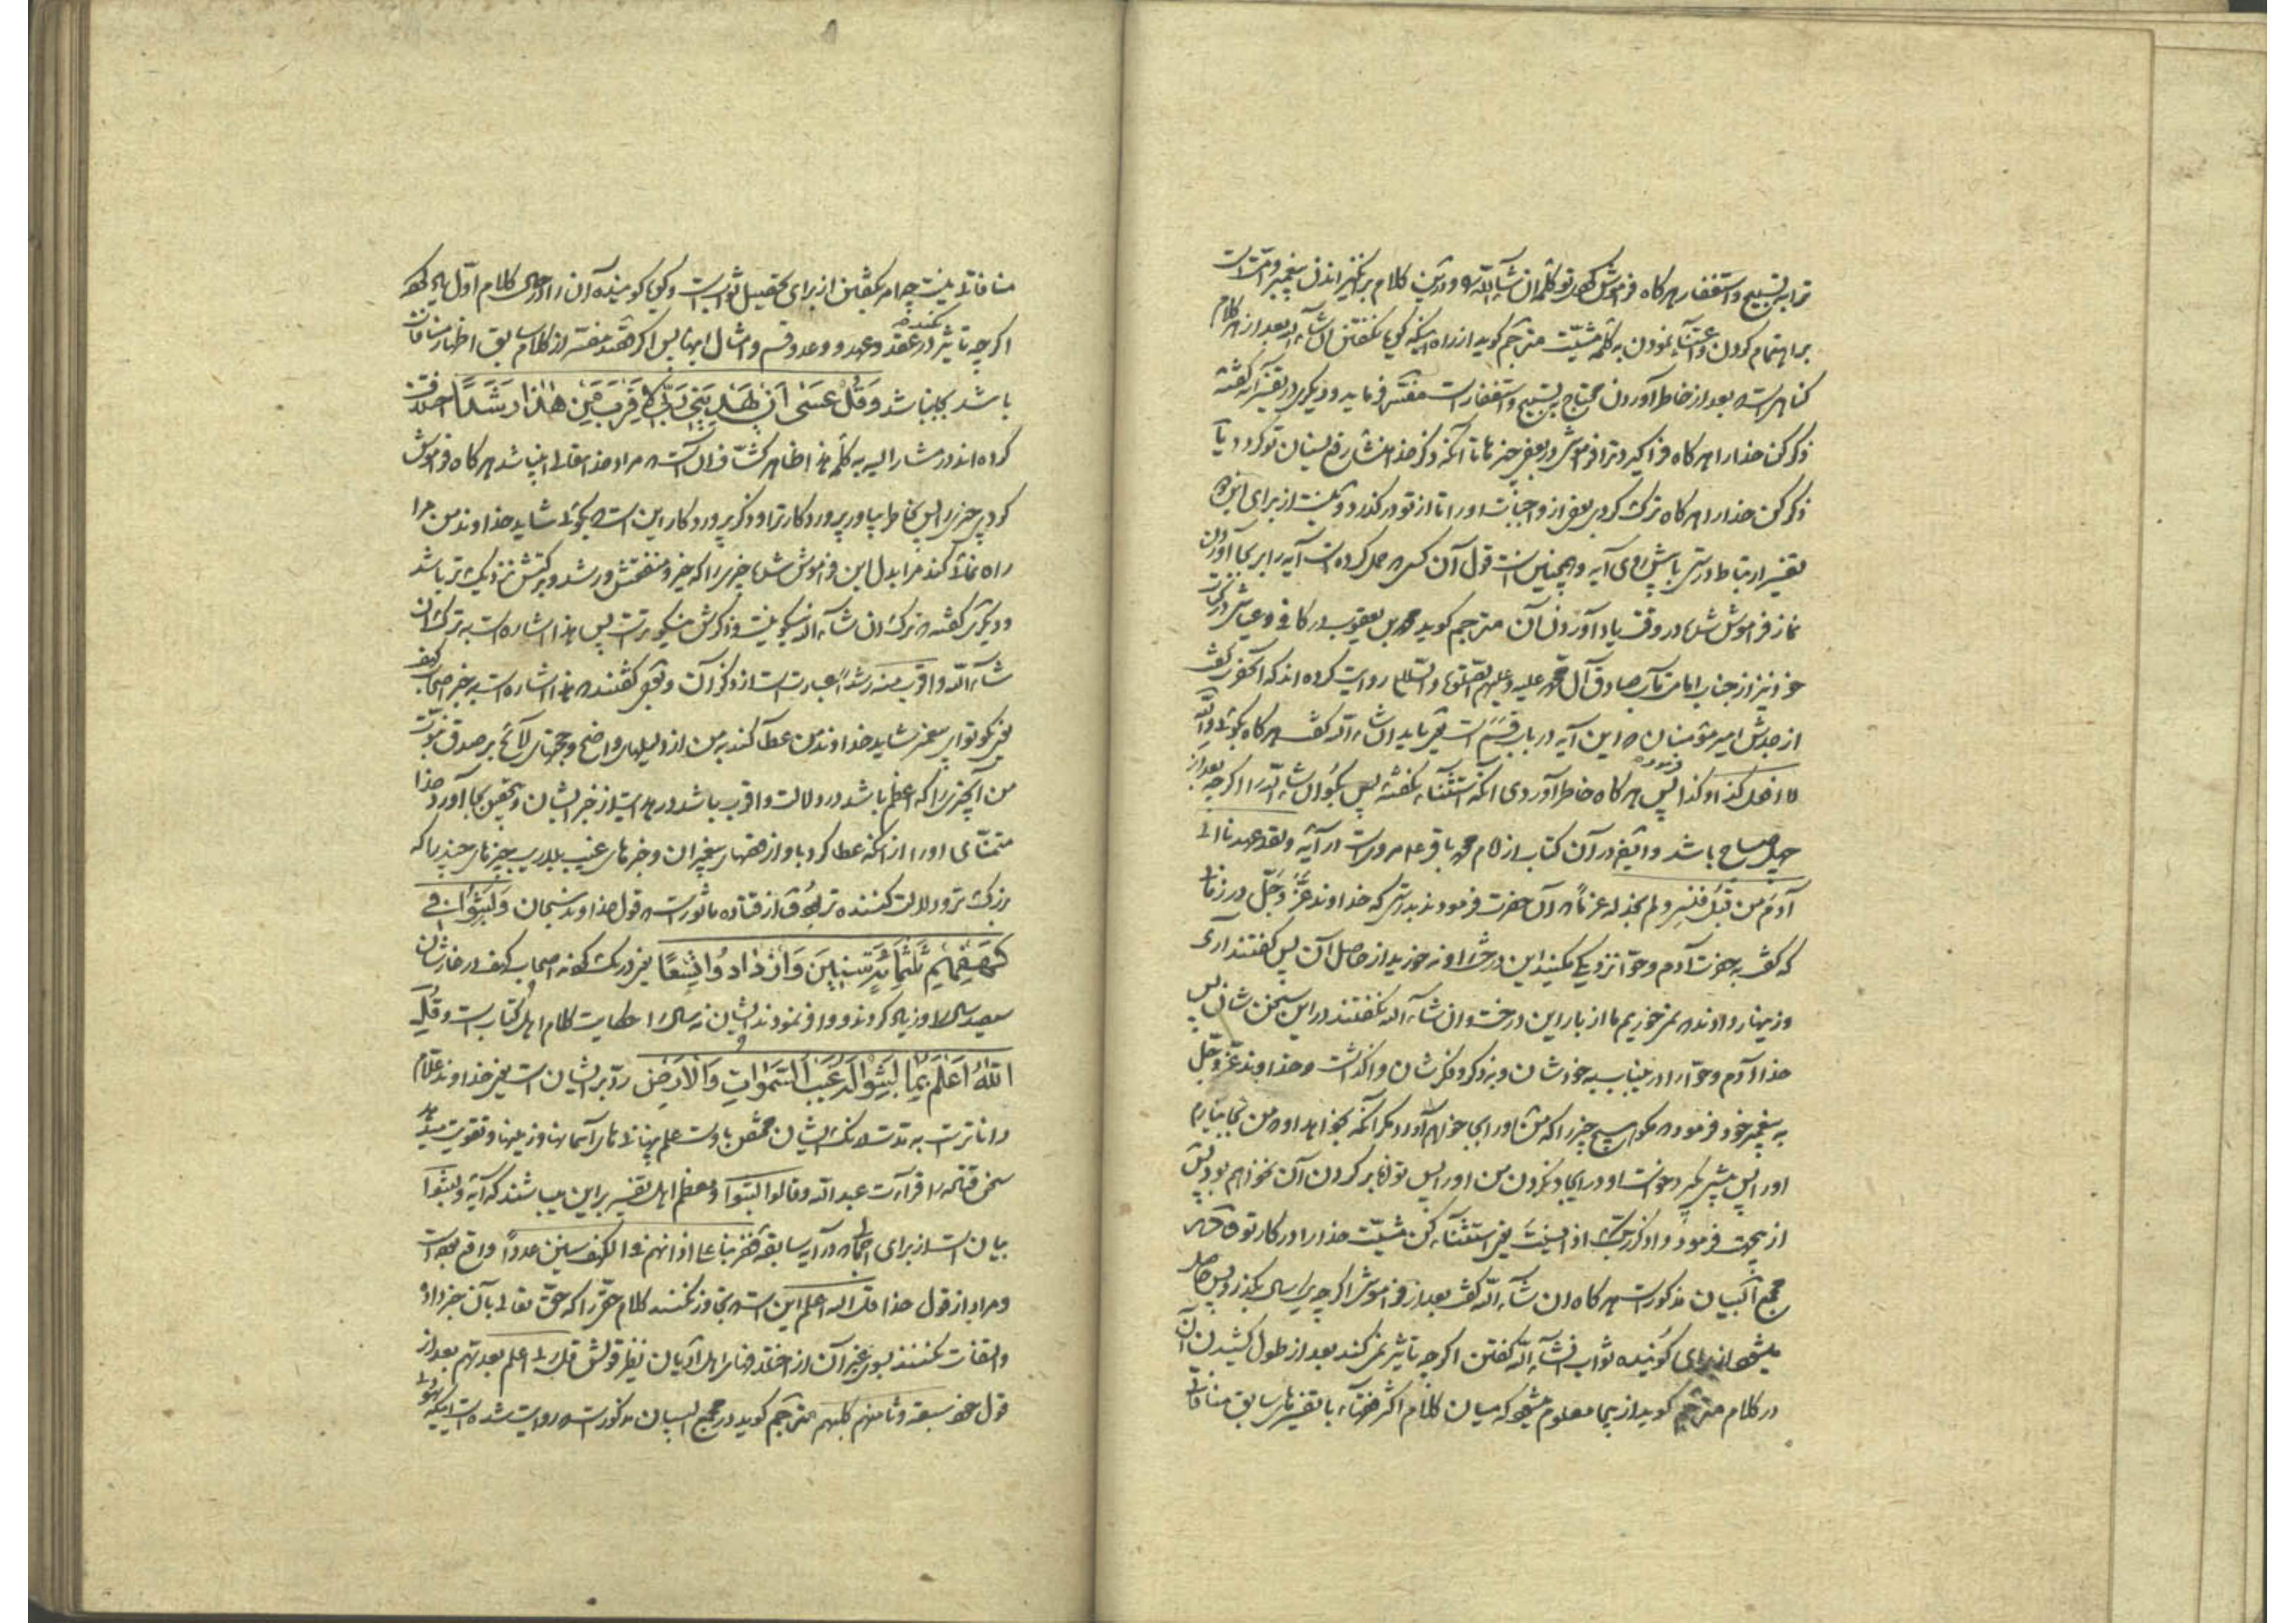 ترا به تسبیح و استغفار هر گاه فراموش کردی تو کلمه ان شاء الله و در این کلام برانگیزاندن پیغمبر و امت است
بر اهتمام کردن و اعتناء نمودن به کلمه مشیت مترجم گوید از راه اینکه گویا نگفتن ان شاء الله بعد از هر کلام
گناهی است که بعد از خاطر آوردن محتاج به تسبیح و استغفار است مفسر فرماید و دیگری در تفسیر آیه گفته
ذکر کن خدا را هر گاه فرا گیرد ترا فراموشی در بعض چیزها تا آنکه ذکر خدا منشأ رفع نسیان تو گردد یا
ذکر کن خدا را هر گاه ترک کردی بعض از واجبات او را تا از تو درگذرد و نیست از برای این دو
تفسیر ارتباط درستی با پیش آی آیه و همچنین است قول آن کس که حمل کرده است آیه را بر بجا آوردن
نماز فراموش شده در وقت یاد آوردن آن مترجم گوید محمد بن یعقوب در کافی و عیاشی در کتاب
خود نیز از جناب امامت مآب صادق آل محمد علیه و علیهم الصلوة و السلام روایت کرده اند که آنحضرت گفت
از جدش امیر مؤمنان که این آیه در باب قسم است یعنی باید ان شاء الله گفت هر گاه بگوئی والله
لا افعل کذا و کذا پس هر گاه خاطر آوردی آنکه استثناء نگفته پس بگو ان شاء الله را اگر چه بعد از
چهل صباح باشد و ایضا در آن کتاب از امام محمد باقر ع مرویست در آیه و لقد عهدنا الی
آدم من قبل فنسی و لم نجد له عزما که آن حضرت فرمودند بدرستی که خداوند عز و جل در زمانی
که گفت به حضرت آدم و حوا نزدیکی مکنید این درخت را و نه خورید از حاصل آن پس گفتند آری
و زینهار دادند که نمی خوریم ما از بار این درخت و ان شاء الله نگفتند در این سخن شان پس
خدا آدم و حوا را در اینباب به خودشان و به ذکر و فکرشان واگذاشت و خداوند عز و جل
به پیغمبر خود فرمود که مگو هیچ چیز را که من فردا او را بجا خواهم آورد مگر آنکه بخواهد او که من بجا نیارم
او را پس پیشی گیرد خواست او در ایجاد نکردن من او را پس توانا بر کردن آن نخواهم بود پیش
از بهجت فرمود و اذکر ربک اذا نسیت یعنی استثناء کن مشیت خدا را در کار تو و در
مجمع البیان مذکور است هر گاه ان شاء الله گفت بعد از فراموشی اگر چه یکسال بگذرد پس حاصل
میشود از برای گوینده ثواب ان شاء الله گفتن اگر چه تاثیر نمی کند بعد از طول کشیدن آن
در کلام مترجم گوید از اینجا معلوم میشود که میان کلام اکثر فقهاء با تفسیرهای سابق منافاتی
منافاتی نیست چرا مر یکیشان از برای تحصیل ثواب است و گویا گوینده آن را در همان کلام اول یاد کرده
اگر چه تاثیر در عقد و عهد و وعد و قسم و امثال اینها نکند پس اگر گفته مفسر از کلام سابق اظهار منافات
باشد بجا نباشد وَقُلْ عَسَى أَنْ يَهْدِيَنِ رَبِّي لِأَقْرَبَ مِنْ هَذَا رَشَدًا اختلاف
کرده اند در مشار الیه به کلمه هذا ظاهر کشاف آن است که مراد خدا تعالی اینباشد هر گاه فراموش
کردی چیزی را پس بخاطر بیاور پروردگار ترا و ذکر پروردگار این است که بگوئی شاید خداوند من مرا
راه نمائی کند مرا بدل این فراموش شده چیزی را که خیر و منفعتش و رشد و برکتش نزدیک تر باشد
و دیگری گفته که ترک ان شاء الله نیکو نیست و ذکرش نیکوتر است پس هذا اشاره است به ترک ان
شاء الله و اقرب منه رشدا عبارت است از ذکر آن و بعضی گفتند که هذا اشاره است به خبر اصحاب کهف
یعنی بگو تو ای پیغمبر شاید خداوند من عطا کند به من از دلیلهای واضح و حجتهای لائح بر صدق نبوت
من آنچیزی را که اعظم باشد در دلالت و اقرب باشد در هدایت از خبر ایشان و بتحقیق بجا آورد خدا
متمنای او را از آنکه عطا کرد باو از قصهای پیغمبران و خبرهای غیب بلاریب چیزهای چند را که
بزرگتر و دلالت کننده تر بود از قتاده ماثور است که قول خداوند سبحان وَلَبِثُوا فِي
كَهْفِهِمْ ثَلَثَمِائَةٍ سِنِينَ وَازْدَادُوا تِسْعًا یعنی درنگ کردند اصحاب کهف در غارشان
سیصد سال را و زیاد کردند و وافر نمودند ایشان نه سال را حکایت کلام اهل کتاب است و قُلِ
اللّٰهُ أَعْلَمُ بِمَا لَبِثُوا لَهُ غَيْبُ السَّمَوَاتِ وَالْأَرْضِ رد بر ایشان است یعنی خداوند علام
دانا تر است به مدت درنگ ایشان مختص باوست علم پنهانی های آسمانها و زمینها و تقویت میدهد
سخن قتاده را قرآءت عبد الله و قالوا لبثوا و معظم اهل تفسیر بر این میباشند که آیه و لبثوا
بیان است از برای اجمالی که در آیه سابقه فضربنا علی اذانهم فی الکهف سنین عددا واقع بوده است
و مراد از قول خدا قل الله اعلم این است که تجاوز نکنند کلام حق را که حق تعالی بآن خبر داد
و التفات نکنند بسوی غیر آن از اختلافهای اهل ادیان نظیر قولش قل ربی اعلم بعدتهم بعد از
قول خود سبعة و ثامنهم کلبهم مترجم گوید در مجمع البیان مذکور است که روایت شده است اینکه یهودی